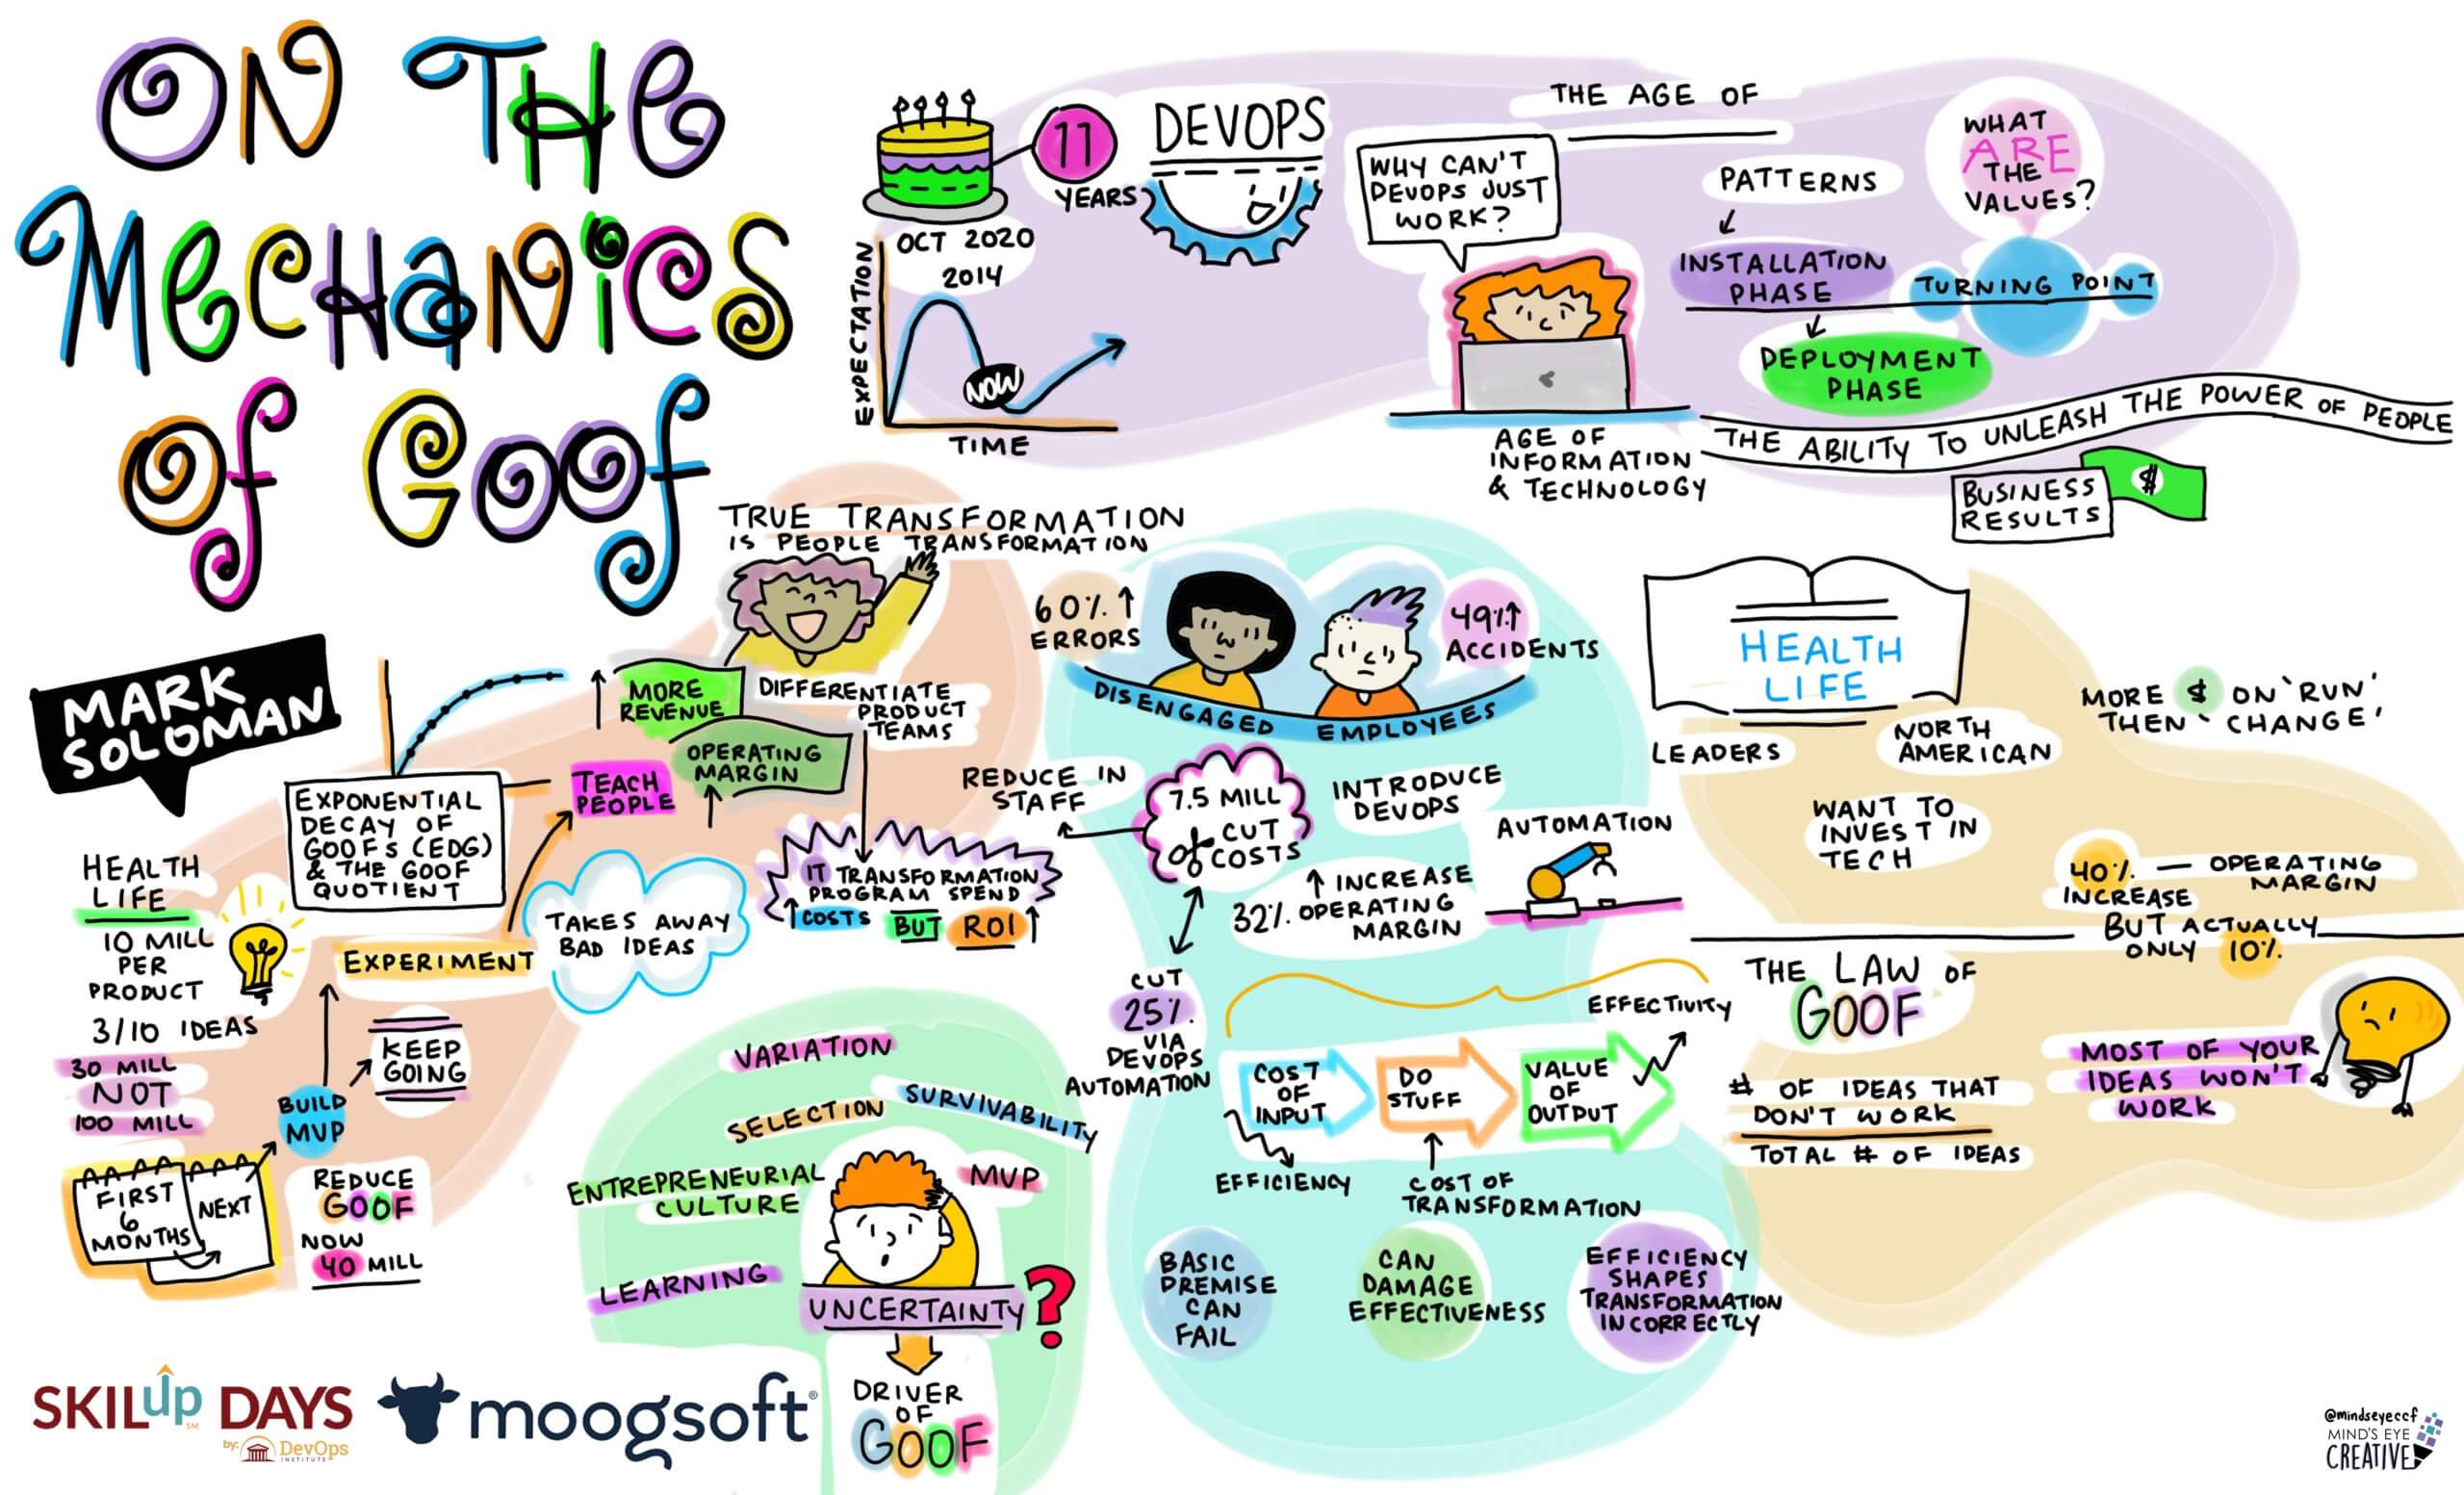 ON THE
MECHANICS
OF GOOF
MARK
SOLOMAN
11
YEARS
DEVOPS
OCT 2020
2014
EXPECTATION
NOW
TIME
WHY CAN'T
DEVOPS JUST
WORK?
AGE OF
INFORMATION
& TECHNOLOGY
THE AGE OF
PATTERNS
INSTALLATION
PHASE
TURNING POINT
DEPLOYMENT
PHASE
WHAT
ARE
THE
VALUES?
THE ABILITY TO UNLEASH THE POWER OF PEOPLE
BUSINESS
RESULTS
$
HEALTH
LIFE
LEADERS
NORTH
AMERICAN
MORE $ ON 'RUN'
THEN 'CHANGE'
WANT TO
INVEST IN
TECH
40% — OPERATING
INCREASE MARGIN
BUT ACTUALLY
ONLY 10%
THE LAW OF
GOOF
# OF IDEAS THAT
DON'T WORK
TOTAL # OF IDEAS
MOST OF YOUR
IDEAS WON'T
WORK
60% ↑
ERRORS
49% ↑
ACCIDENTS
DISENGAGED EMPLOYEES
REDUCE IN
STAFF
7.5 MILL
CUT
COSTS
INTRODUCE
DEVOPS
AUTOMATION
↑ INCREASE
32% OPERATING
MARGIN
CUT
25%
VIA
DEVOPS
AUTOMATION
EFFECTIVITY
COST
OF
INPUT
DO
STUFF
VALUE
OF
OUTPUT
EFFICIENCY
COST OF
TRANSFORMATION
BASIC
PREMISE
CAN
FAIL
CAN
DAMAGE
EFFECTIVENESS
EFFICIENCY
SHAPES
TRANSFORMATION
INCORRECTLY
TRUE TRANSFORMATION
IS PEOPLE TRANSFORMATION
MORE
REVENUE
OPERATING
MARGIN
DIFFERENTIATE
PRODUCT
TEAMS
TEACH
PEOPLE
IT TRANSFORMATION
PROGRAM SPEND
↑ COSTS BUT ROI ↑
EXPONENTIAL
DECAY OF
GOOFS (EDG)
& THE GOOF
QUOTIENT
TAKES AWAY
BAD IDEAS
EXPERIMENT
HEALTH
LIFE
10 MILL
PER
PRODUCT
3/10 IDEAS
30 MILL
NOT
100 MILL
KEEP
GOING
BUILD
MVP
FIRST
6
MONTHS
NEXT
REDUCE
GOOF
NOW
40 MILL
VARIATION
SELECTION
SURVIVABILITY
ENTREPRENEURIAL
CULTURE
MVP
LEARNING
UNCERTAINTY ?
DRIVER
OF
GOOF
SKILup DAYS
SM
by: DevOps
INSTITUTE
moogsoft®
@mindseyeccf
MIND'S EYE
CREATIVE